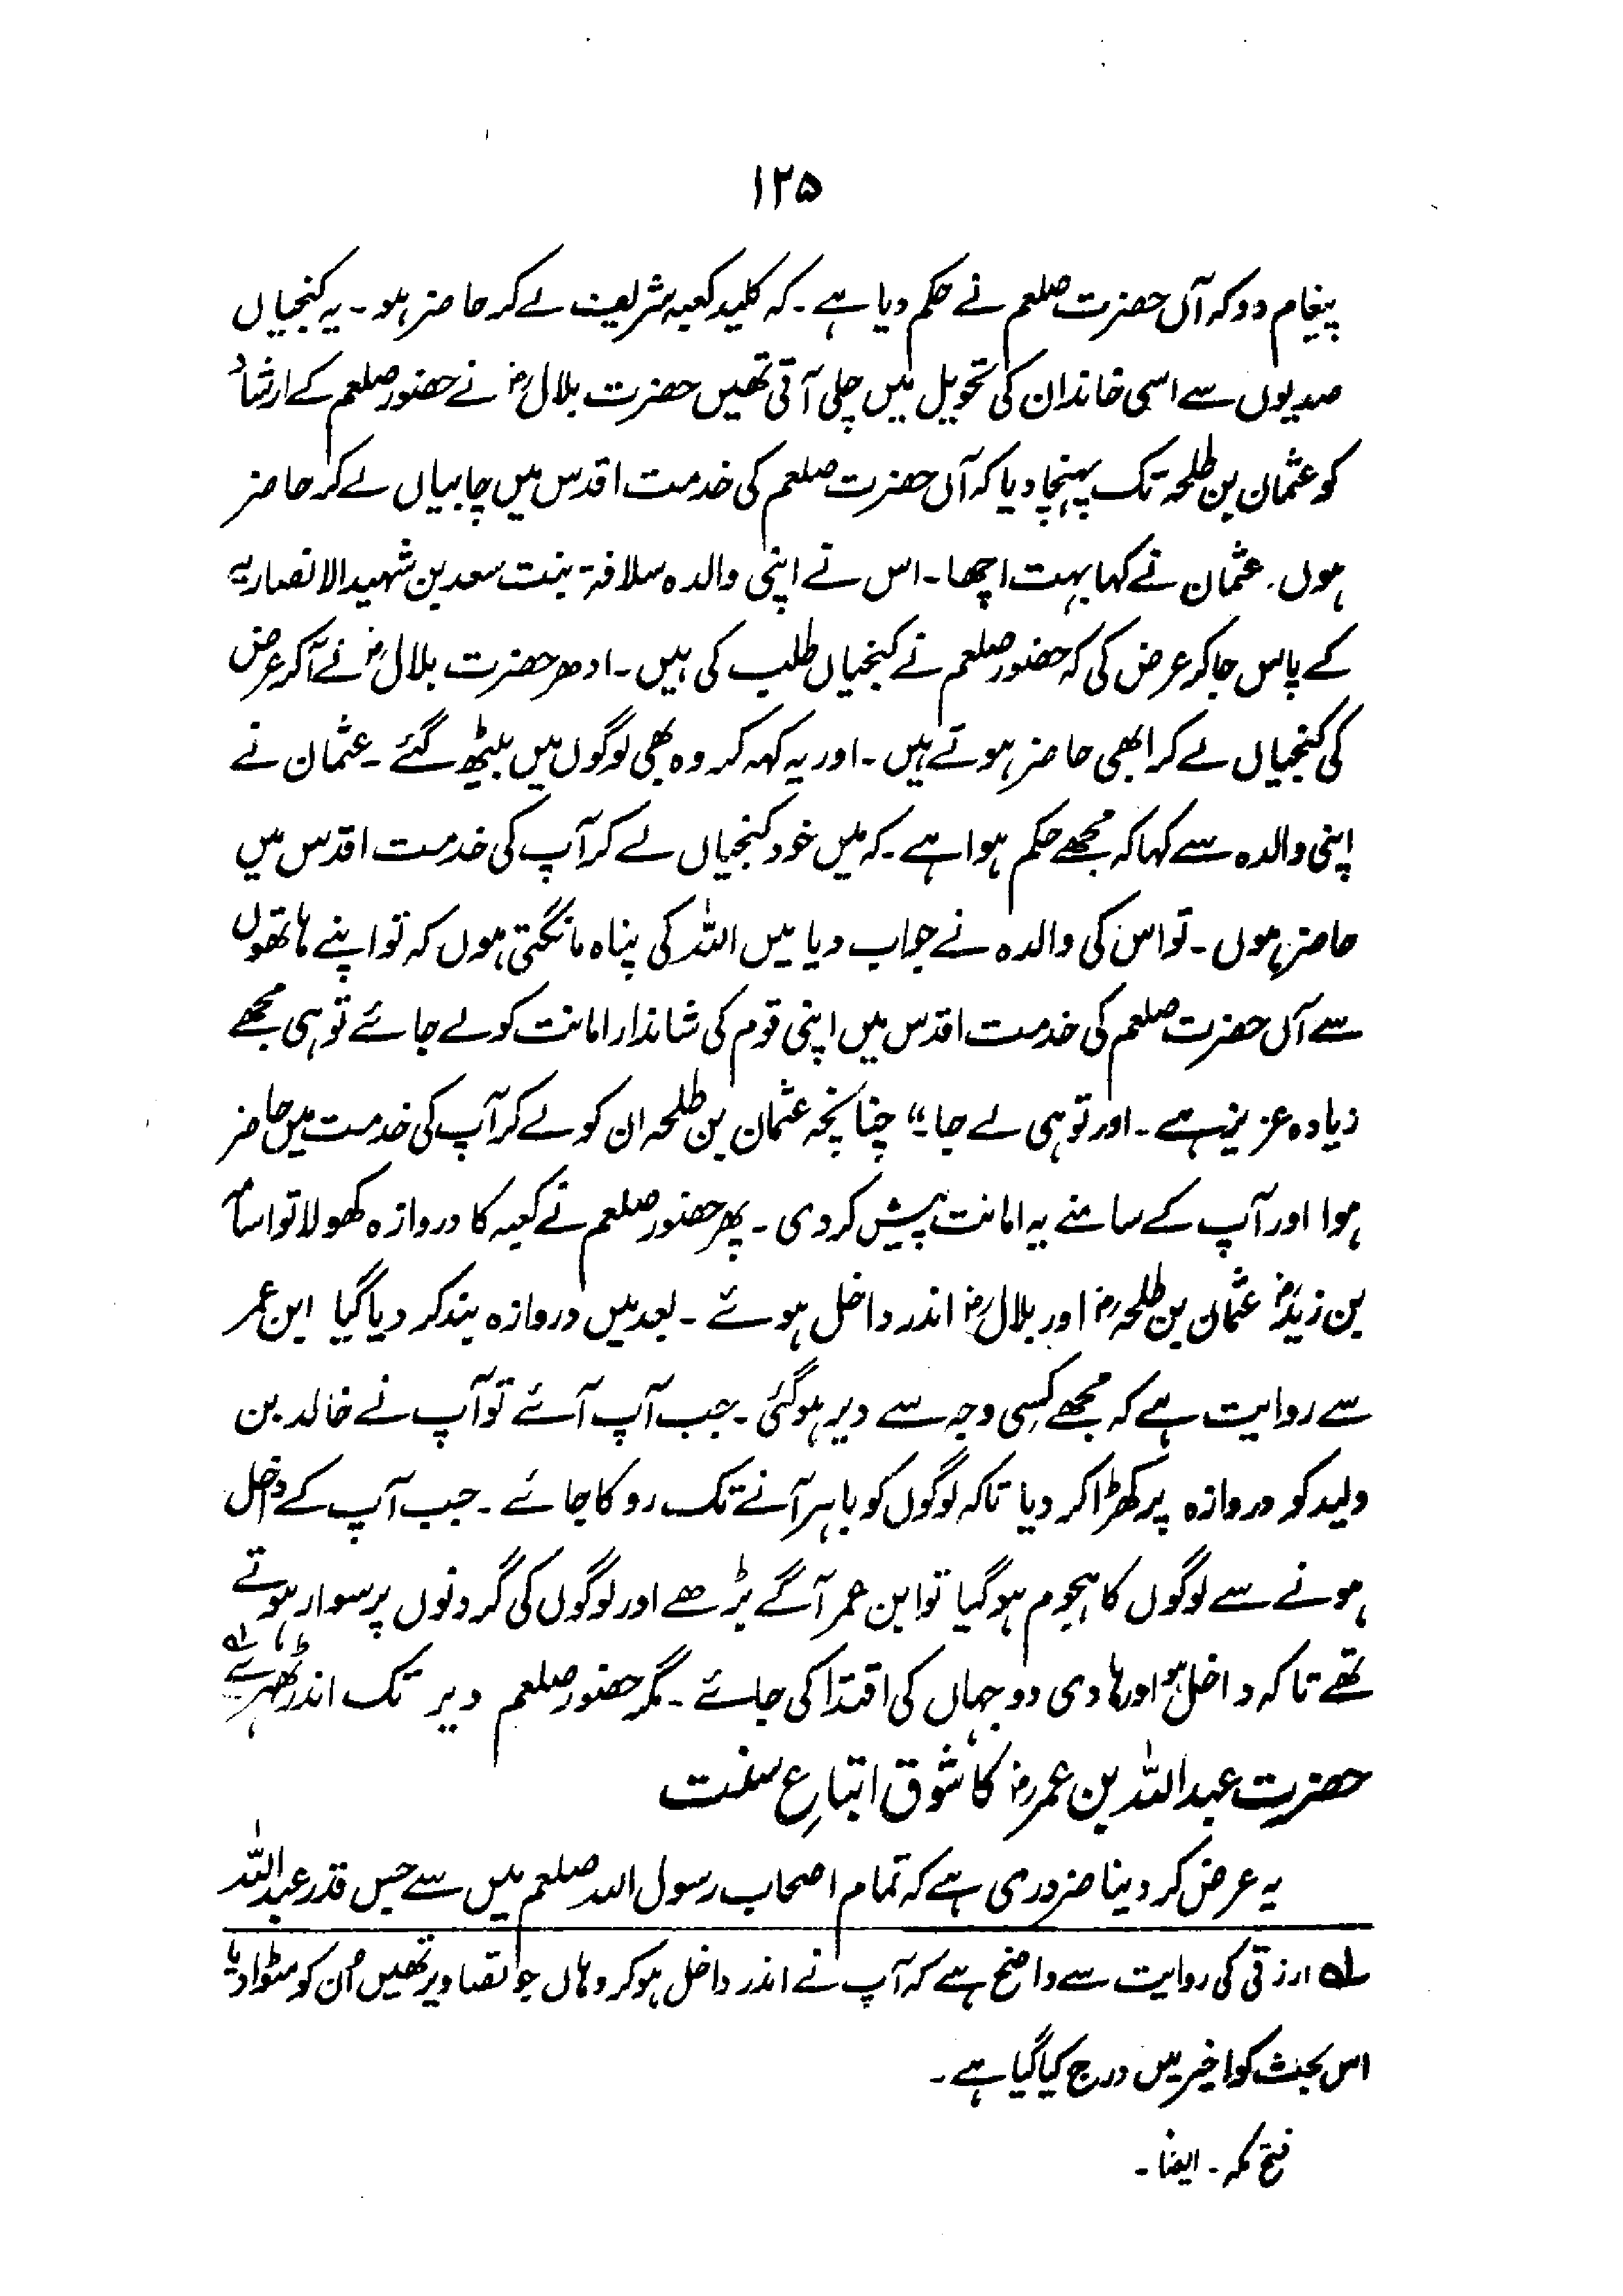 ۱۲۵
پیغام دو کہ آں حضرت صلعم نے حکم دیا ہے۔ کہ کلید کعبہ شریف لے کر حاضر ہو۔ یہ کنجیاں
صدیوں سے اسی خاندان کی تحویل میں چلی آتی تھیں حضرت بلالؓ نے حضور صلعم کے ارشاد
کو عثمان بن طلحہ تک پہنچا دیا کہ آں حضرت صلعم کی خدمت اقدس میں چابیاں لے کر حاضر
ہوں۔ عثمان نے کہا بہت اچھا۔ اس نے اپنی والدہ سلافۃ بنت سعد بن شہید الانصاریہ
کے پاس جا کر عرض کی کہ حضور صلعم نے کنجیاں طلب کی ہیں۔ ادھر حضرت بلالؓ نے آکر عرض
کی کنجیاں لے کر ابھی حاضر ہوتے ہیں۔ اور یہ کہہ کر وہ بھی لوگوں میں بیٹھ گئے۔ عثمان نے
اپنی والدہ سے کہا کہ مجھے حکم ہوا ہے۔ کہ میں خود کنجیاں لے کر آپ کی خدمت اقدس میں
حاضر ہوں۔ تو اس کی والدہ نے جواب دیا میں اللہ کی پناہ مانگتی ہوں کہ تو اپنے ہاتھوں
سے آں حضرت صلعم کی خدمت اقدس میں اپنی قوم کی شاندار امانت کو لے جائے تو ہی مجھے
زیادہ عزیز ہے۔ اور تو ہی لے جا۔“ چنانچہ عثمان بن طلحہ ان کو لے کر آپ کی خدمت میں حاضر
ہوا اور آپ کے سامنے یہ امانت پیش کر دی۔ پھر حضور صلعم نے کعبہ کا دروازہ کھولا تو اسامہ
بن زیدؓ عثمان بن طلحہؓ اور بلالؓ اندر داخل ہوئے۔ بعد میں دروازہ بند کر دیا گیا ابن عمر
سے روایت ہے کہ مجھے کسی وجہ سے دیر ہو گئی۔ جب آپ آئے تو آپ نے خالد بن
ولید کو دروازہ پر کھڑا کر دیا تاکہ لوگوں کو باہر آنے تک روکا جائے۔ جب آپ کے داخل
ہونے سے لوگوں کا ہجوم ہو گیا تو ابن عمر آگے بڑھے اور لوگوں کی گردنوں پر سوار ہوتے
تھے تاکہ داخل ہو اور ہادی دو جہاں کی اقتدا کی جائے۔ مگر حضور صلعم دیر تک اندر ٹھہرے
حضرت عبداللہ بن عمرؓ کا شوق اتباعِ سنت
یہ عرض کر دینا ضروری ہے کہ تمام اصحاب رسول اللہ صلعم میں سے جس قدر عبداللہ
لہ ارزقی کی روایت سے واضح ہے کہ آپ نے اندر داخل ہو کر وہاں جو تصاویر تھیں اُن کو مٹوا دیا
اس بحث کو اخیر میں درج کیا گیا ہے۔
فتح مکہ۔ ایضا۔